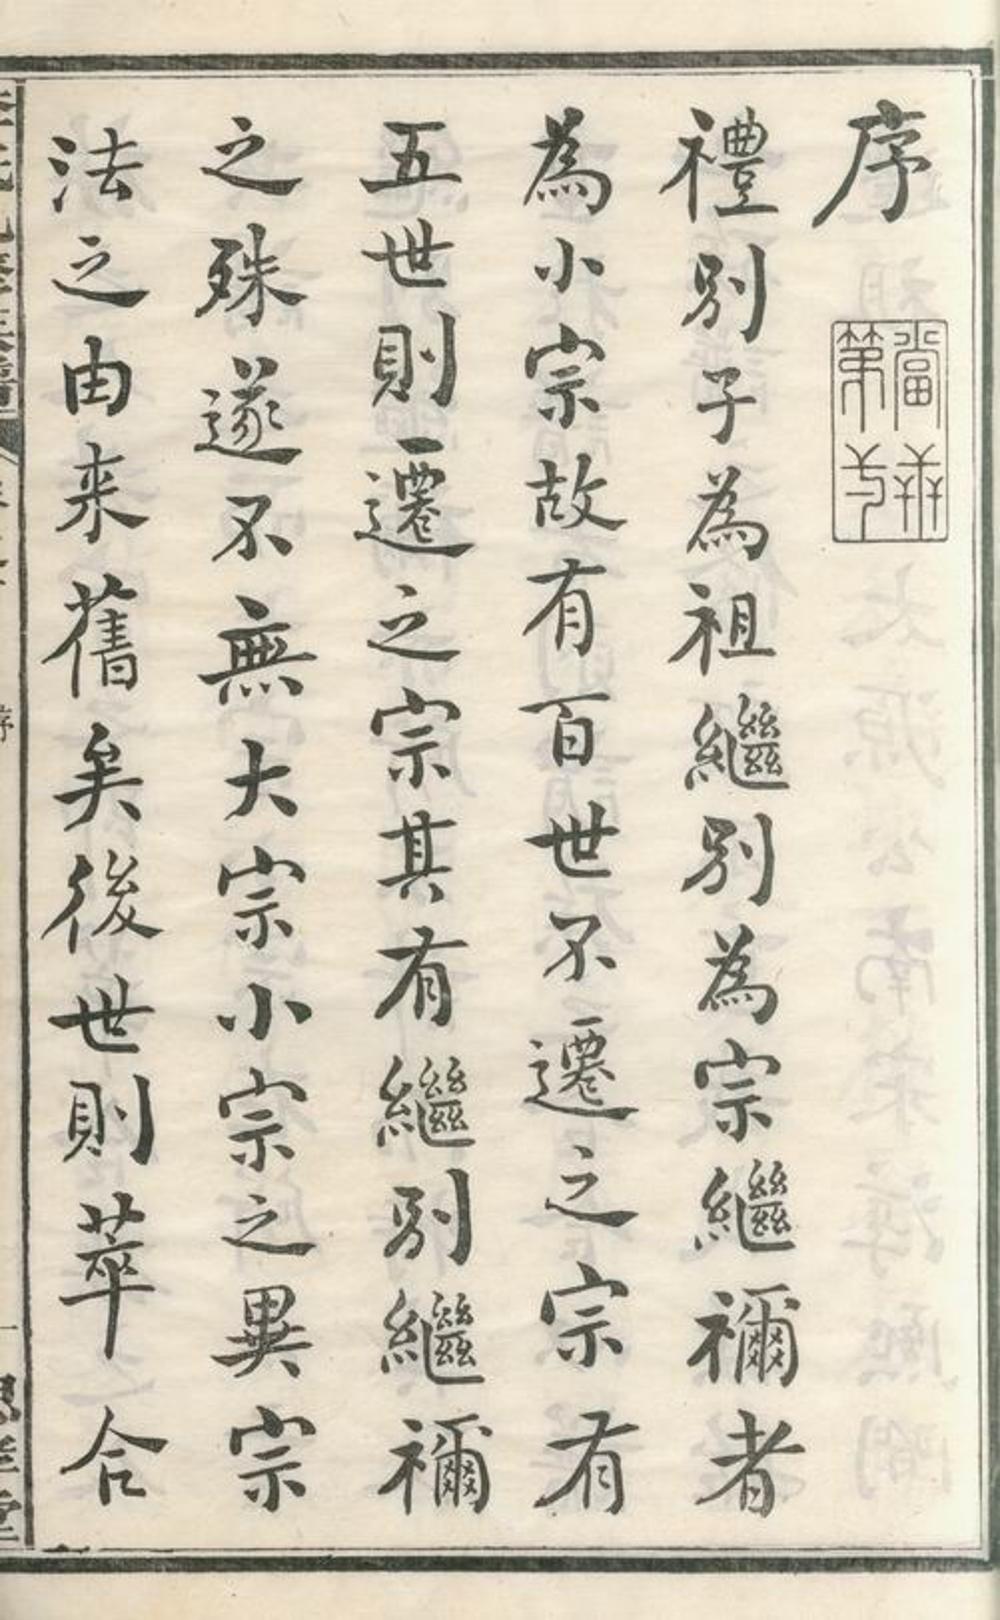 序
禮別子為祖繼別為宗繼禰者
為小宗故有百世不遷之宗有
五世則遷之宗其有繼別繼禰
之殊遂不無大宗小宗之異宗
法之由来舊矣後世則萃合
序